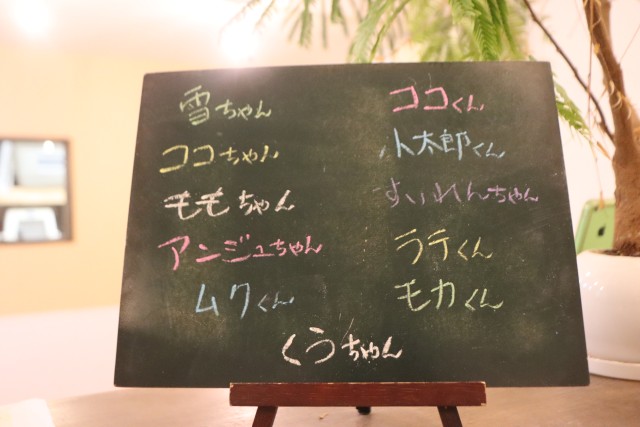 雪ちゃん
ココちゃん
ももちゃん
アンジュちゃん
ムクくん
ココくん
小太郎くん
すいれんちゃん
ラテくん
モカくん
くうちゃん